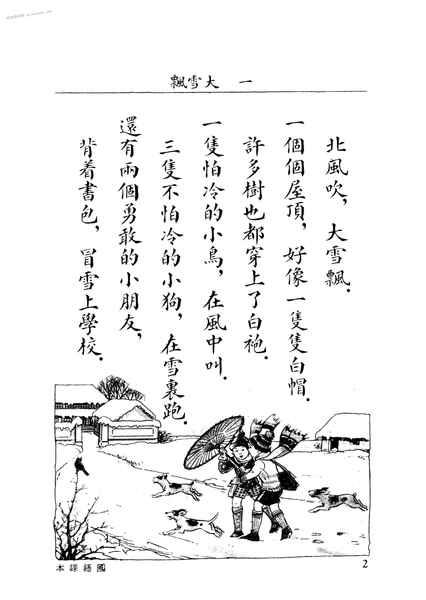 一 大雪飄
北風吹，大雪飄．
一個個屋頂，好像一隻隻白帽．
許多樹也都穿上了白袍．
一隻怕冷的小鳥，在風中叫．
三隻不怕冷的小狗，在雪裏跑．
還有兩個勇敢的小朋友，
背着書包，冒雪上學校．
國語課本
2